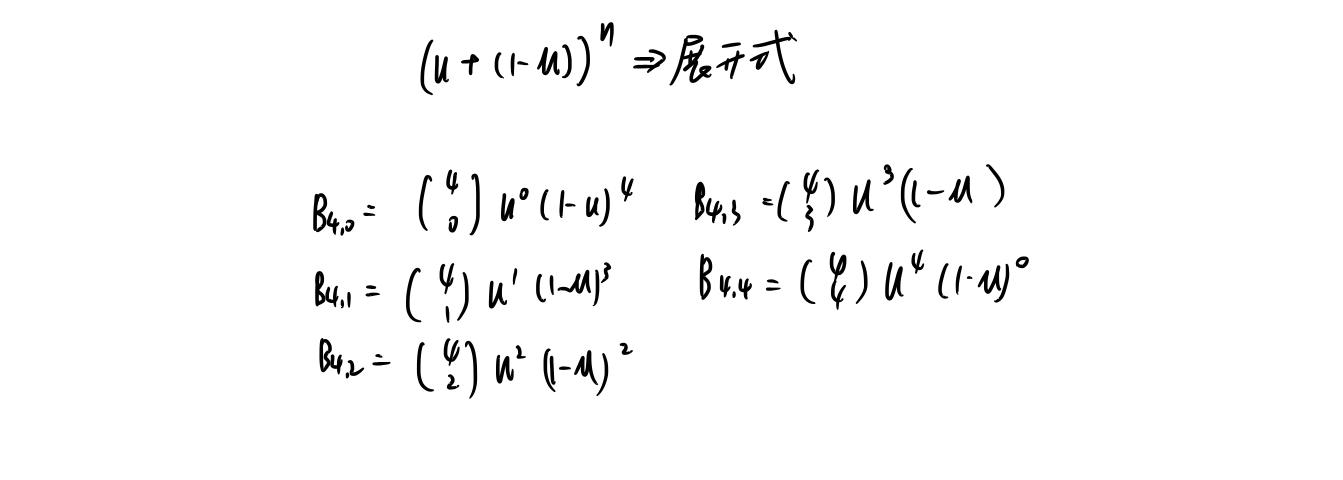 (u + (1-u))^n ⇒ 展开式
B₄,₀ = (4 0) u⁰ (1-u)⁴
B₄,₁ = (4 1) u¹ (1-u)³
B₄,₂ = (4 2) u² (1-u)²
B₄,₃ = (4 3) u³ (1-u)
B₄,₄ = (4 4) u⁴ (1-u)⁰